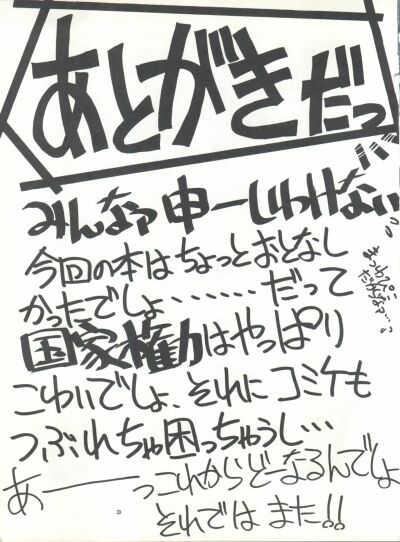 あとがきだっ
みんなァ申ーしわけない
今回の本はちょっとおとなし
かったでしょ……だって
国家権力はやっぱり
こわいでしょ、それにコミケも
つぶれちゃ困っちゃうし…
あーーっこれからどーなるんでしょ
それでは また!!
53